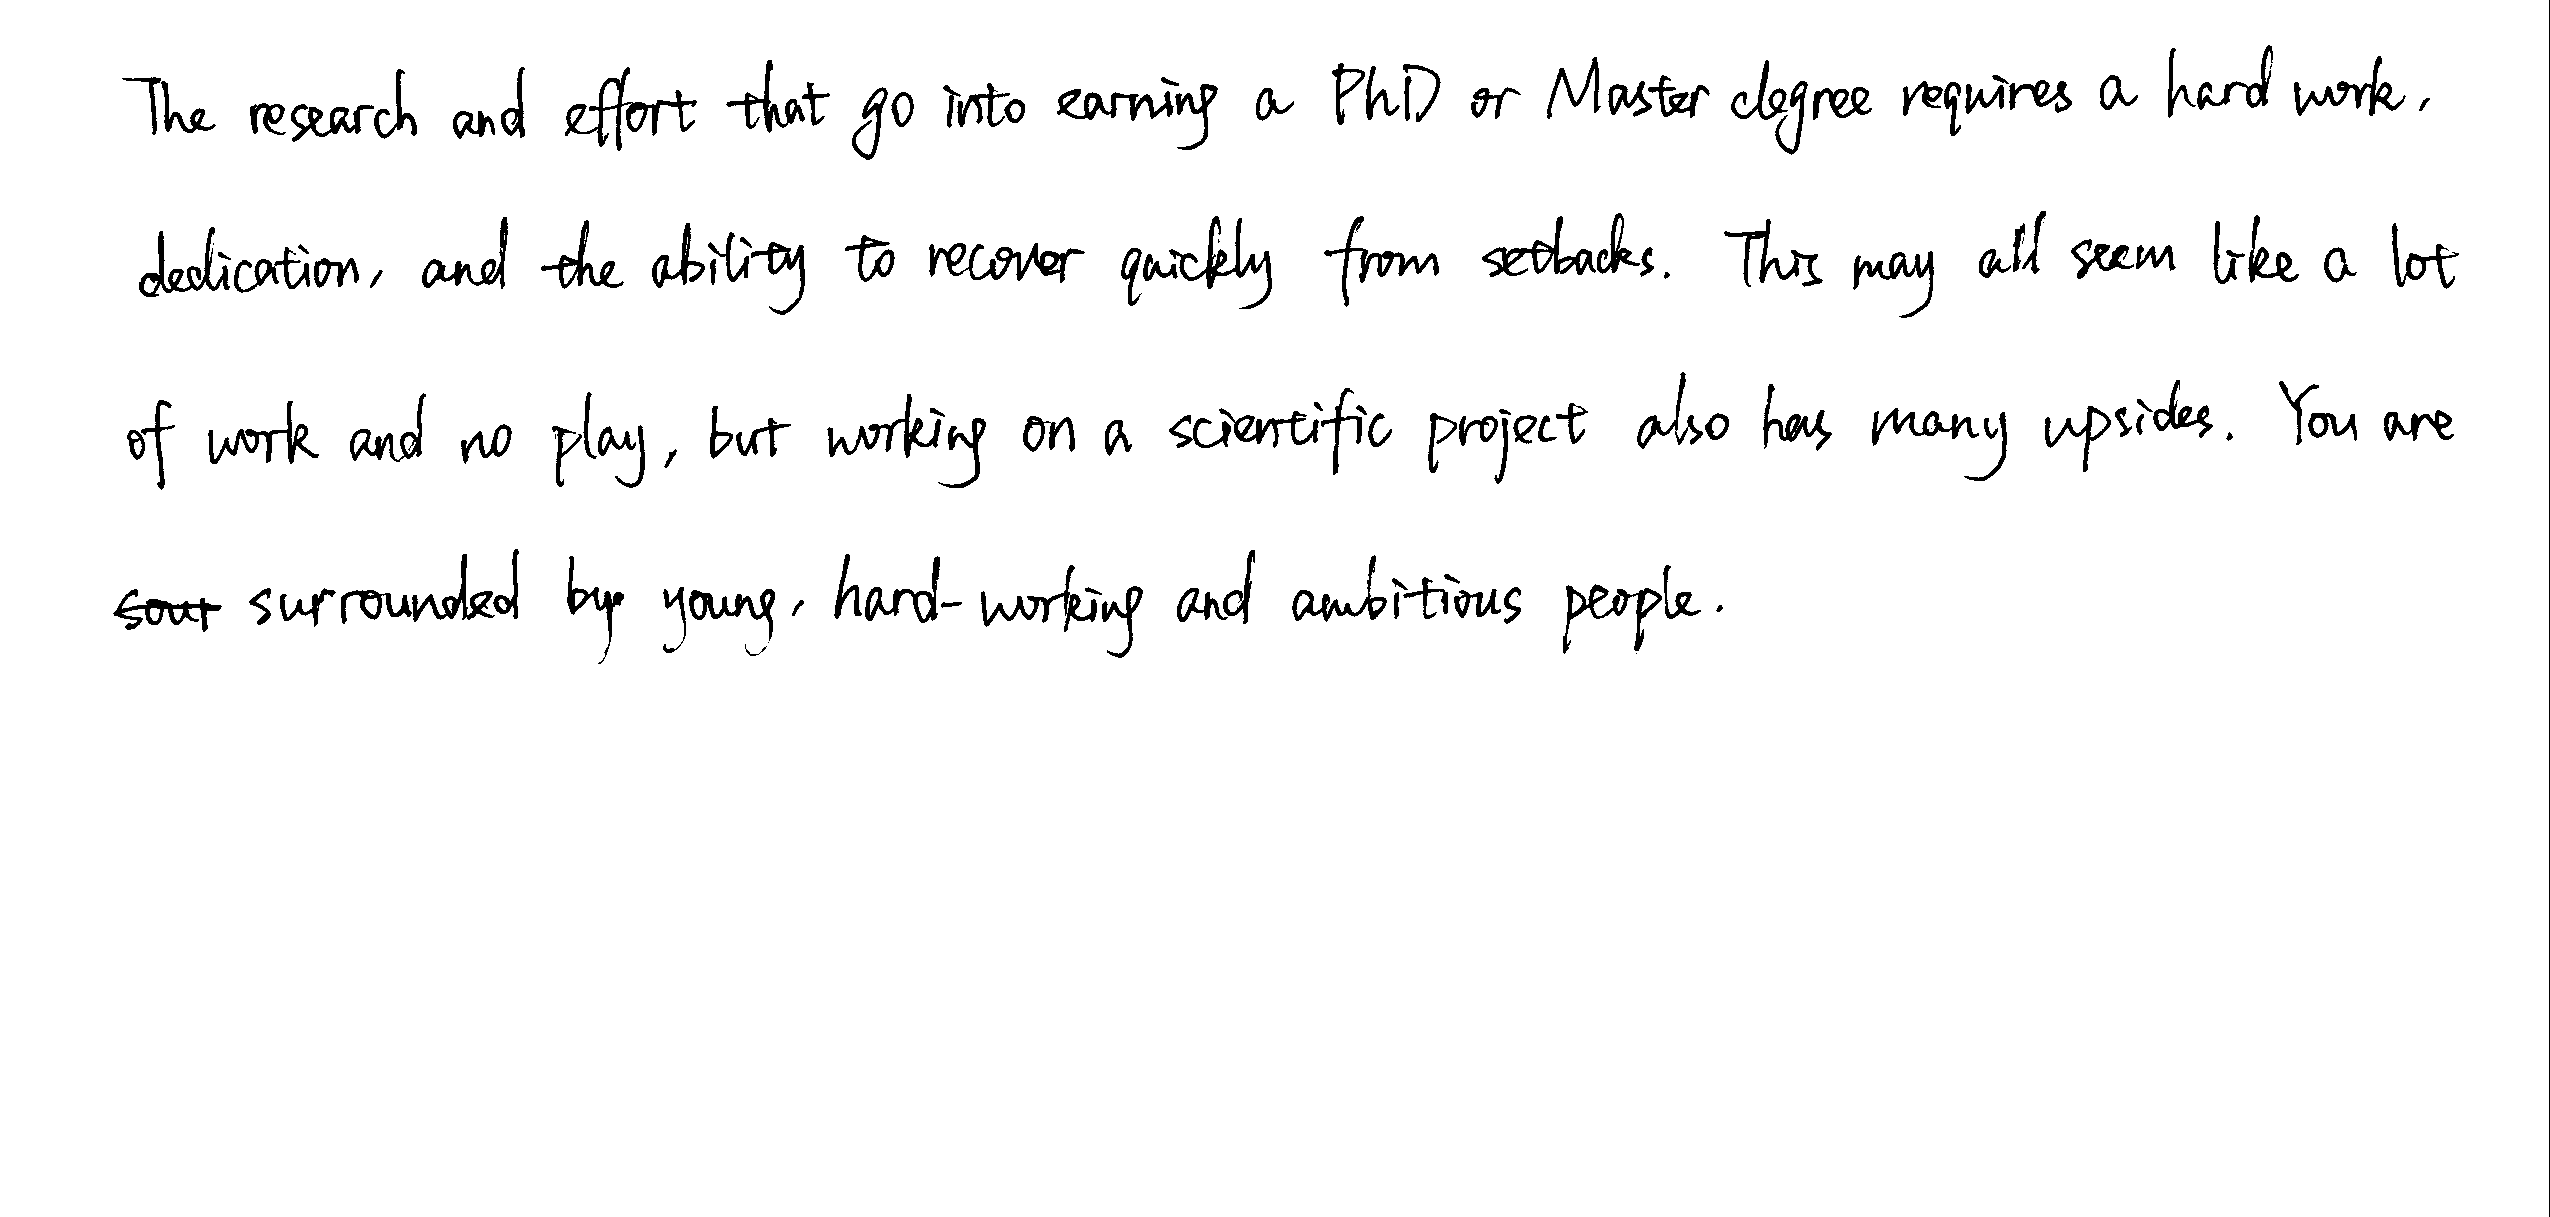 The research and effort that go into earning a PhD or Master degree requires a hard work,
dedication, and the ability to recover quickly from setbacks. This may all seem like a lot
of work and no play, but working on a scientific project also has many upsides. You are
surrounded by young, hard-working and ambitious people.